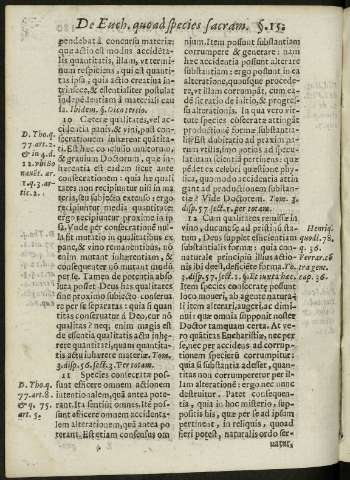 De Euch. quoad species sacram. §. 15.
pendebat à concursu materiæ
quæ actio est modus acciden­ta-
lis quantitatis, illam, vt termi-
num respiciens, qui est quanti-
tas ipsa; quia actio creatiua in-
trinsecè, & essentialiter postulat
independentiam à materiali cau
sa. Ibidem §.
10 Cæteræ qualitates, vel ac-
cidentia panis, & vini, post con-
secrationem inhærent qualita-
ti. Est hæc conclusio multorum,
& grauium Doctorum, quæ in-
hærentia est eadem sicut ante
consecrationem: quia hæ quali-
tates non recipiuntur nisi in ma
teria, seu subiecto extenso: ergo
recipiuntur media quantitate:
ergo recipiuntur proximè in ip
sa. Vnde per consecrationē nul-
la fit mutatio in qualitatibus ex
pane, & vno relictis, quia nō
enim mutant inhærentiam, &
consequenter nō mutant modū
per se. Tamen de potentia abso
luta posset Deus has qualitates
sine proximo subiecto conserua
re per se separatas: quia si quan
titas conseruatur à Deo, cur nō
qualitas? neq; enim magis est
de essentia qualitatis actu inhæ-
rere quantitati, quàm quantita-
tis actu inhærere materiæ. Tom.
3. disp. 56. sect. 3. Per totam.
11 Species consecratæ pos-
sunt efficere omnem actionem
intentionalem, quā antea pote-
rant. Ita sentiunt omnes. Itē pos-
sunt efficere omnem accidenta-
lem alterationem, quā antea po
terant. Est etiam consensus om
D. Tho. q.
77. art. 2.
& in 4. d.
12.
1. q. 3. ar-
tic. 2.
D. Tho. q.
77. art. 8.
& q. 75.
art. 5.
nium. Item possunt substantiam
corrumpere & generare: nam
hæ species possunt efficere in ea
alteratione, quousque procede-
re, vt illam corrumpāt, cum ea-
dē sit ratio de initio, & progres-
su alterationis. In qua vero vir-
tute species consecratæ attingāt
productionē formæ substantia-
lis: Est dubitatio ad præsens par
vi vtilis, imo potius ad specu-
latiuam scientiā pertinens: quæ
pēdet ex celebri quæstione phy
sica, quomodo accidentia attin
gant ad productionem substan-
tiæ? Vide Doctorem. Tom. 3.
disp. 57. sect. 1. per totam.
12 Cum qualitates remissæ in
vino, ducunt se ad pristinū sta-
tum, Deus supplet efficientiam
substantialis formæ: quia con-
naturale principiū illius actio-
nis ibi deest, deficiēte forma. To.
3. disp. 57. sect. 2. §. sic iuxta hæc.
Item species consecratæ possunt
loco moueri, ab agente naturali
& item alterari, augeri, ac dimi-
nui: quæ omnia supponit noster
Doctor tamquam certa. At ve-
rō quātitas Eucharistiæ, nec per
se, nec per accidens ad corrup-
tionem specierū corrumpitur:
quia si substantia adesset, quan-
titas non corrumperetur per il-
lam alterationē: ergo nec nunc
destruitur. Patet consequen-
tia, quia in hoc misterio, sup-
positis his, quæ per se ad ipsum
pertinent, in reliquis, quoad
fieri potest, naturalis ordo ser-
uatur.
Henriq.
quodl. 78.
q. 36.
Ferrar. 4.
cap. 36.